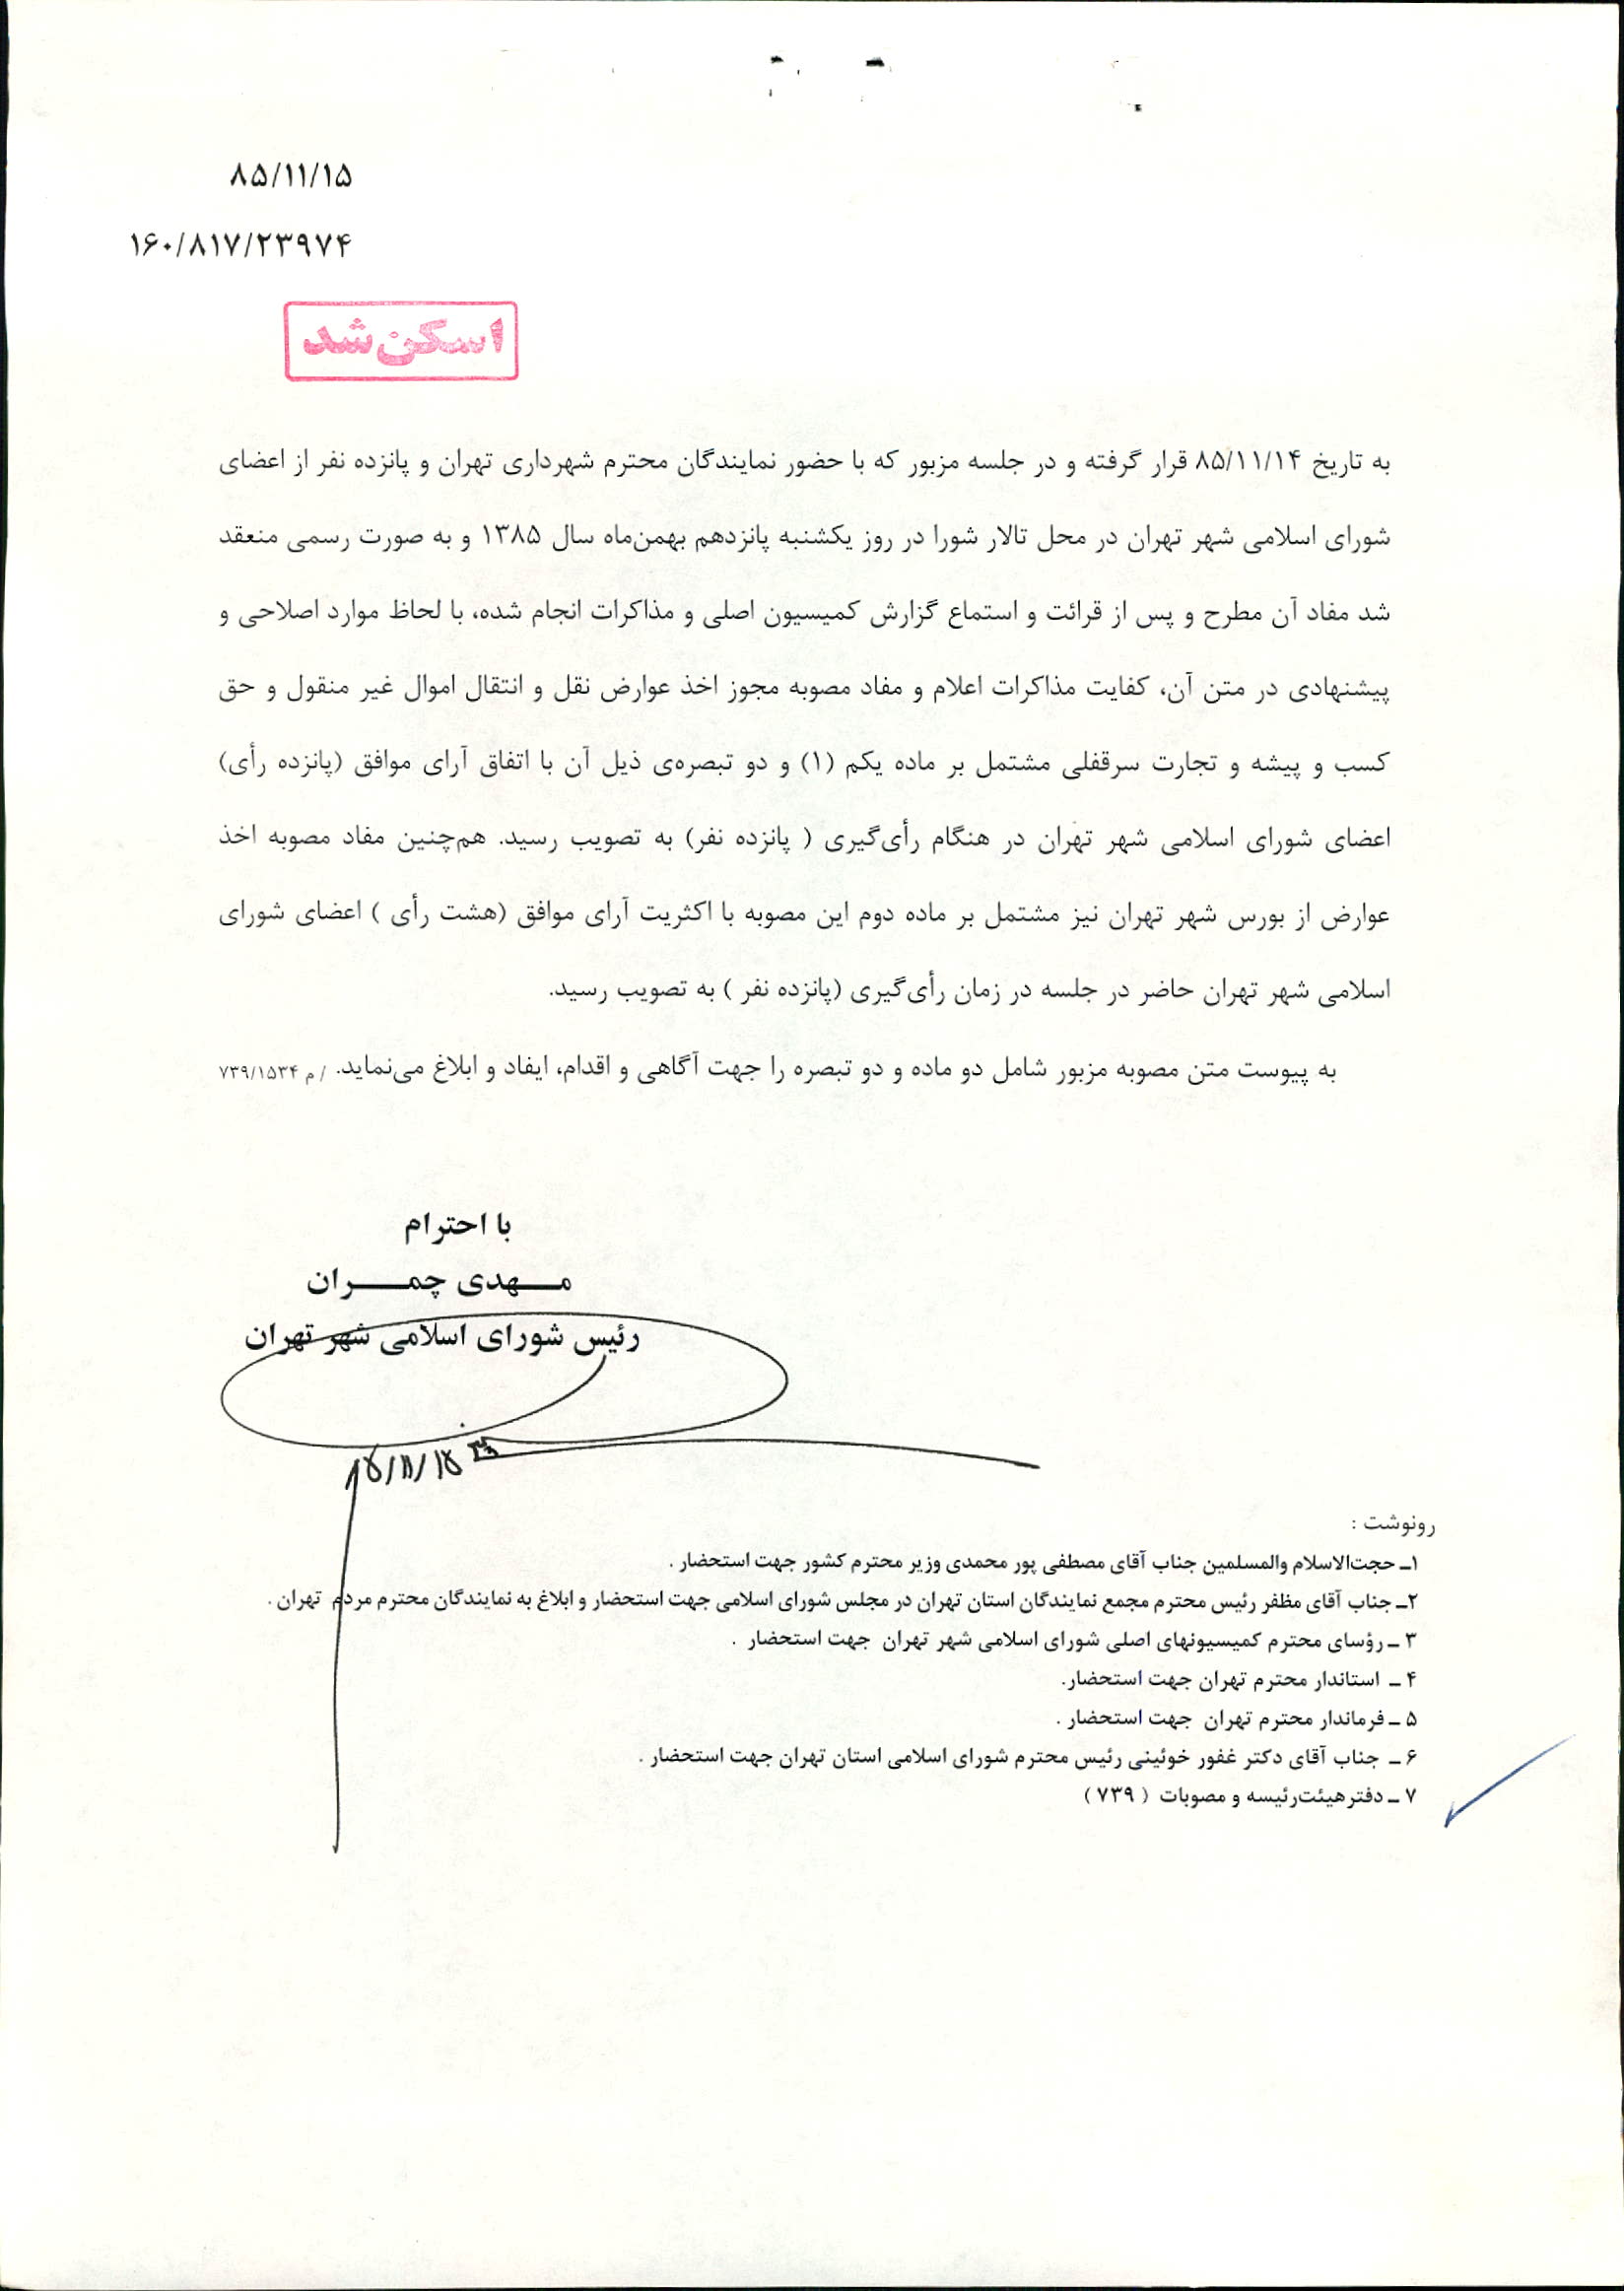 ۸۵/۱۱/۱۵
۱۶۰/۸۱۷/۲۳۹۷۴
اسکن شد
به تاریخ ۸۵/۱۱/۱۴ قرار گرفته و در جلسه مزبور که با حضور نمایندگان محترم شهرداری تهران و پانزده نفر از اعضای
شورای اسلامی شهر تهران در محل تالار شورا در روز یکشنبه پانزدهم بهمن‌ماه سال ۱۳۸۵ و به صورت رسمی منعقد
شد مفاد آن مطرح و پس از قرائت و استماع گزارش کمیسیون اصلی و مذاکرات انجام شده، با لحاظ موارد اصلاحی و
پیشنهادی در متن آن، کفایت مذاکرات اعلام و مفاد مصوبه مجوز اخذ عوارض نقل و انتقال اموال غیر منقول و حق
کسب و پیشه و تجارت سرقفلی مشتمل بر ماده یکم (۱) و دو تبصره‌ی ذیل آن با اتفاق آرای موافق (پانزده رأی)
اعضای شورای اسلامی شهر تهران در هنگام رأی‌گیری ( پانزده نفر) به تصویب رسید. هم‌چنین مفاد مصوبه اخذ
عوارض از بورس شهر تهران نیز مشتمل بر ماده دوم این مصوبه با اکثریت آرای موافق (هشت رأی ) اعضای شورای
اسلامی شهر تهران حاضر در جلسه در زمان رأی‌گیری (پانزده نفر ) به تصویب رسید.
به پیوست متن مصوبه مزبور شامل دو ماده و دو تبصره را جهت آگاهی و اقدام، ایفاد و ابلاغ می‌نماید. / م ۷۳۹/۱۵۳۴
با احترام
مـهدی چمـران
رئیس شورای اسلامی شهر تهران
رونوشت :
۱ـ حجت‌الاسلام والمسلمین جناب آقای مصطفی پور محمدی وزیر محترم کشور جهت استحضار .
۲ـ جناب آقای مظفر رئیس محترم مجمع نمایندگان استان تهران در مجلس شورای اسلامی جهت استحضار و ابلاغ به نمایندگان محترم مردم تهران .
۳ ـ رؤسای محترم کمیسیونهای اصلی شورای اسلامی شهر تهران جهت استحضار .
۴ ـ استاندار محترم تهران جهت استحضار.
۵ ـ فرماندار محترم تهران جهت استحضار .
۶ ـ جناب آقای دکتر غفور خوئینی رئیس محترم شورای اسلامی استان تهران جهت استحضار .
۷ ـ دفتر هیئت‌رئیسه و مصوبات ( ۷۳۹ )